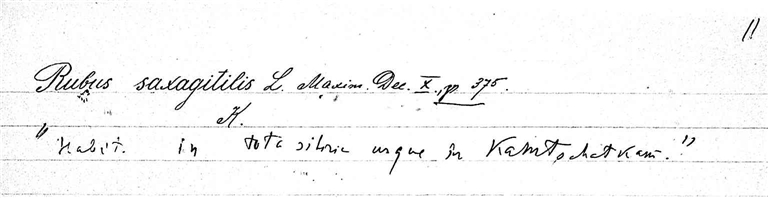 11
Rubus saxagitilis L. Maxim. Dec. X, p. 375.
K.
"Habit. in tota sibiria usque in Kamtschatkam."